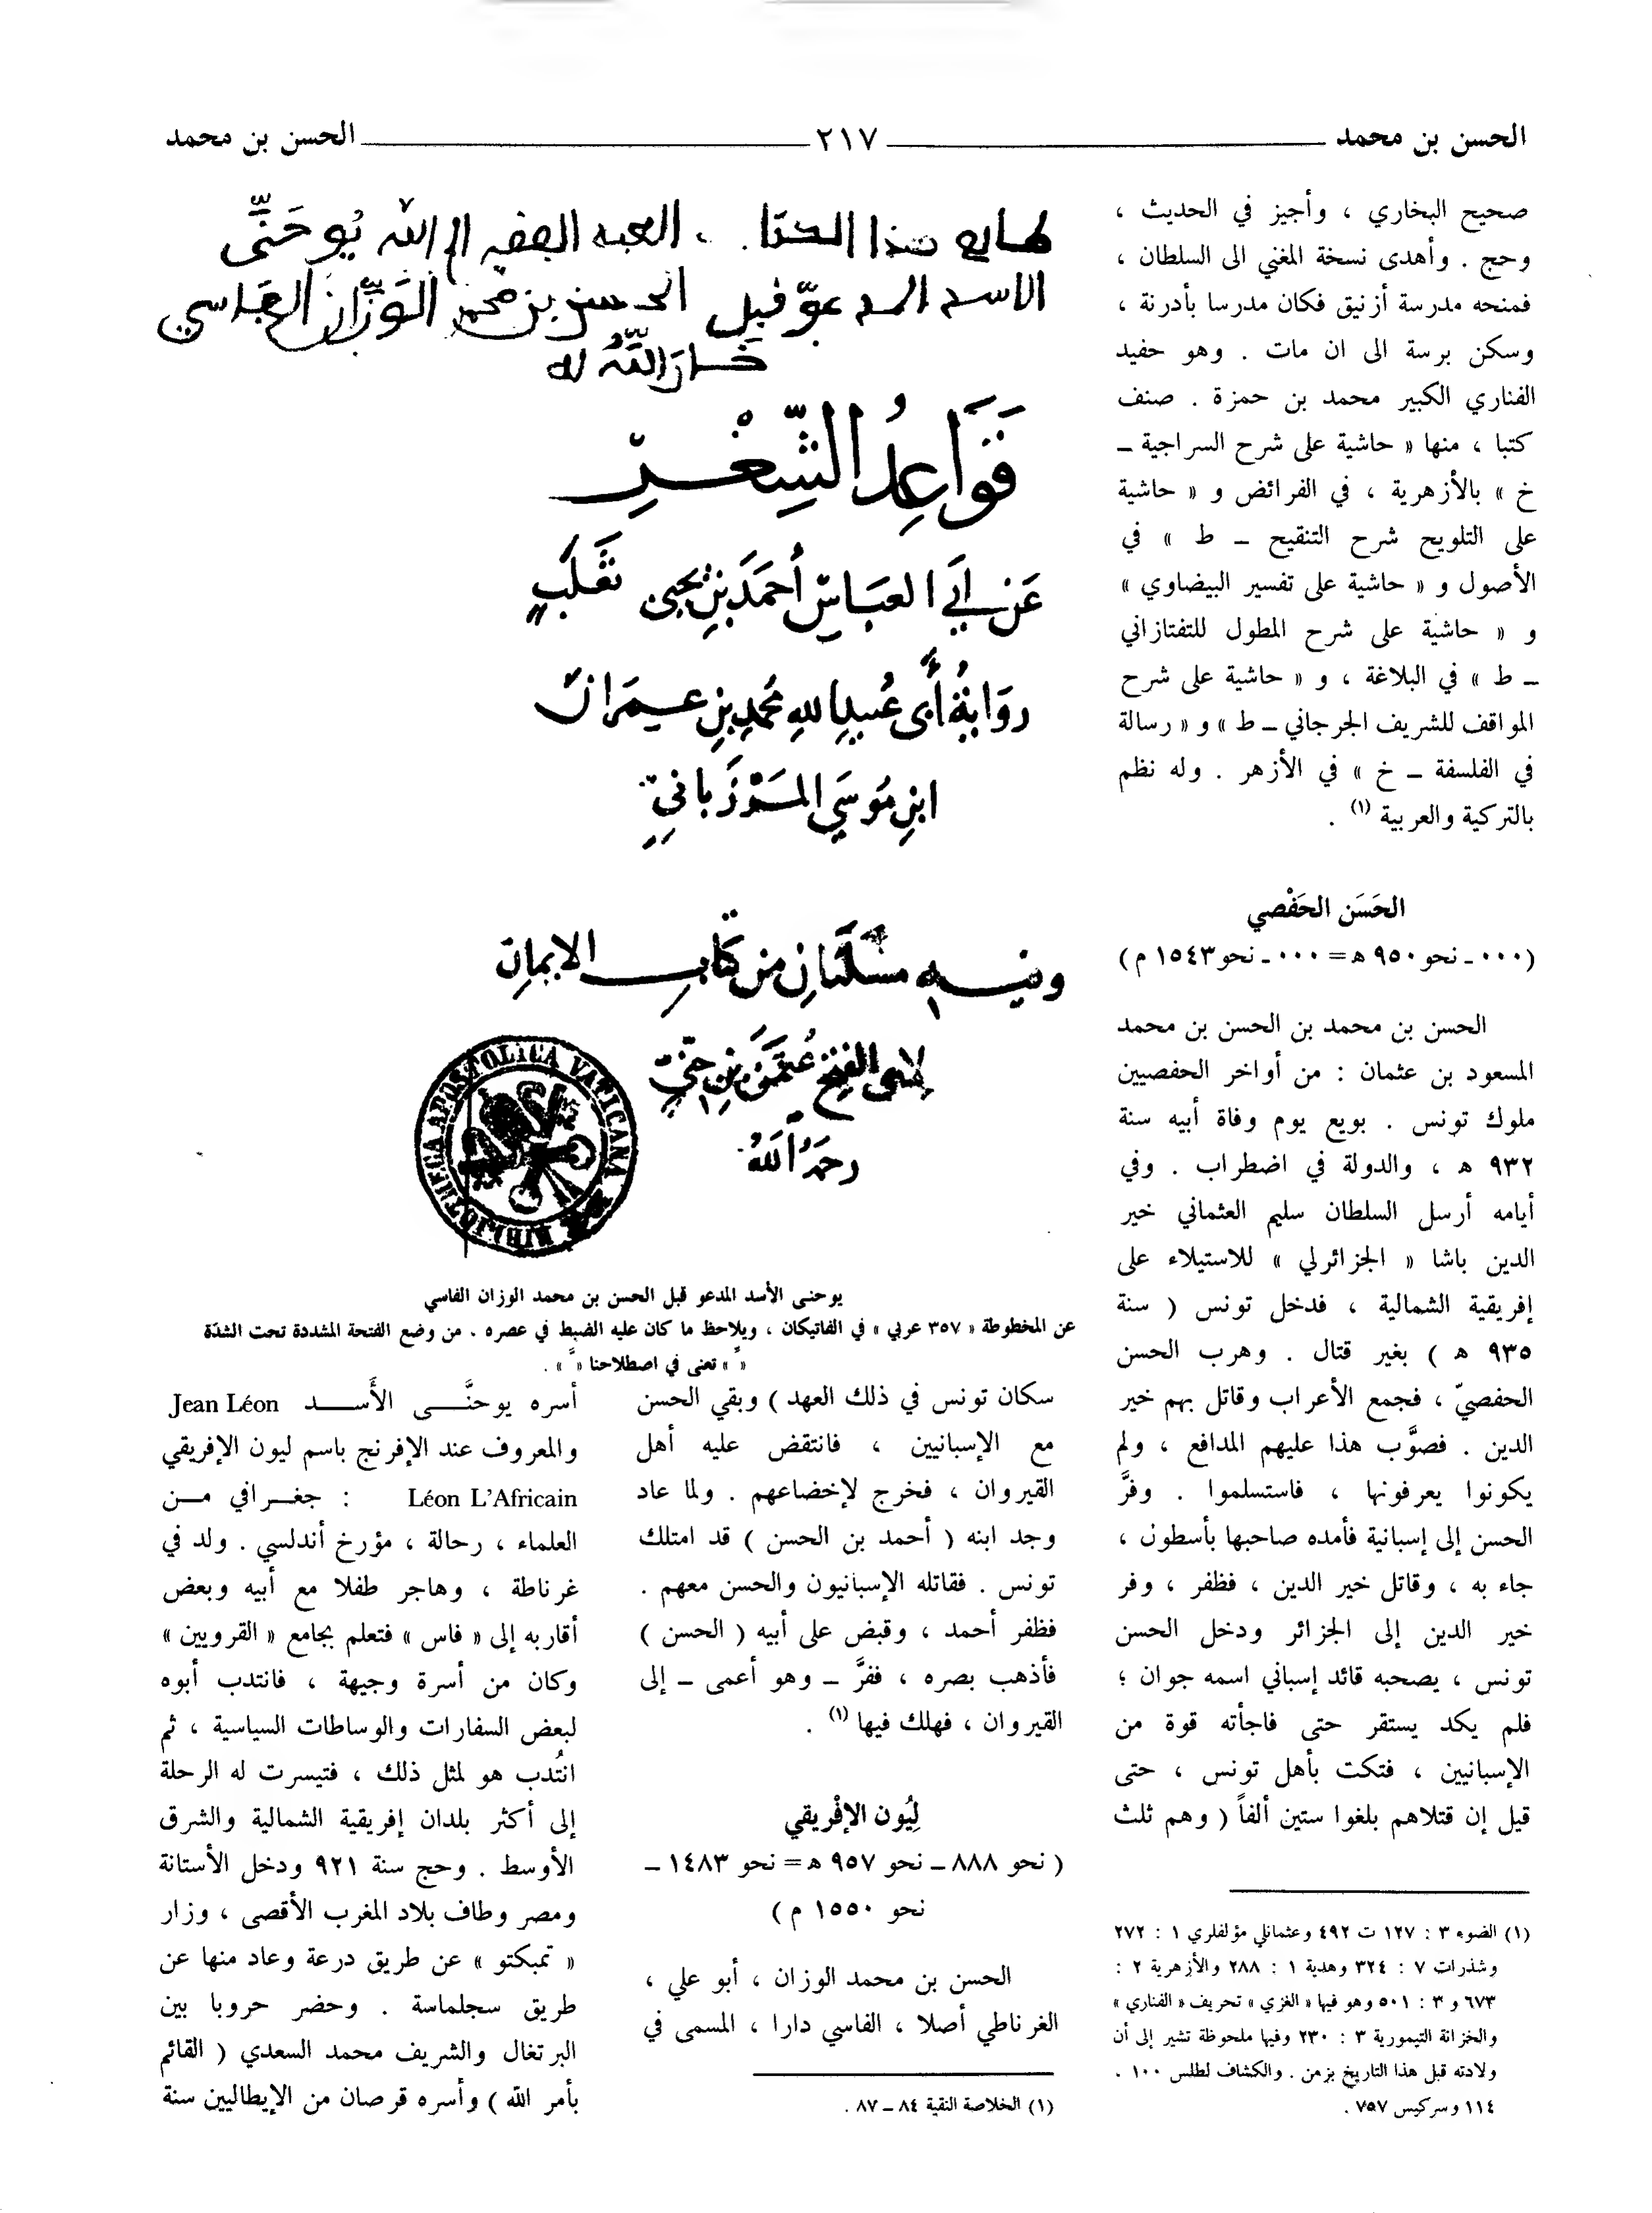 الحسن بن محمد ٢١٧ الحسن بن محمد
صحيح البخاري ، وأجيز في الحديث ،
وحج . وأهدى نسخة المغني الى السلطان ،
فمنحه مدرسة أزنيق فكان مدرسا بأدرنة ،
وسكن برسة الى ان مات . وهو حفيد
الفناري الكبير محمد بن حمزة . صنف
كتبا ، منها « حاشية على شرح السراجية ــ
خ » بالأزهرية ، في الفرائض و « حاشية
على التلويح شرح التنقيح ــ ط » في
الأصول و « حاشية على تفسير البيضاوي »
و « حاشية على شرح المطول للتفتازاني
ــ ط » في البلاغة ، و « حاشية على شرح
المواقف للشريف الجرجاني ــ ط » و « رسالة
في الفلسفة ــ خ » في الأزهر . وله نظم
بالتركية والعربية (١) .
الحَسَن الحَفْصي
(٠٠٠ ـ نحو ٩٥٠ هـ = ٠٠٠ ـ نحو ١٥٤٣ م)
الحسن بن محمد بن الحسن بن محمد
المسعود بن عثمان : من أواخر الحفصيين
ملوك تونس . بويع يوم وفاة أبيه سنة
٩٣٢ هـ ، والدولة في اضطراب . وفي
أيامه أرسل السلطان سليم العثماني خير
الدين باشا « الجزائرلي » للاستيلاء على
إفريقية الشمالية ، فدخل تونس ( سنة
٩٣٥ هـ ) بغير قتال . وهرب الحسن
الحفصيّ ، فجمع الأعراب وقاتل بهم خير
الدين . فصوَّب هذا عليهم المدافع ، ولم
يكونوا يعرفونها ، فاستسلموا . وفرَّ
الحسن إلى إسبانية فأمده صاحبها بأسطول ،
جاء به ، وقاتل خير الدين ، فظفر ، وفر
خير الدين إلى الجزائر ودخل الحسن
تونس ، يصحبه قائد إسباني اسمه جوان ؛
فلم يكد يستقر حتى فاجأته قوة من
الإسبانيين ، فتكت بأهل تونس ، حتى
قيل إن قتلاهم بلغوا ستين ألفاً ( وهم ثلث
(١) الضوء ٣ : ١٢٧ ت ٤٩٢ وعثمانلي مؤلفلري ١ : ٢٧٢
وشذرات ٧ : ٣٢٤ وهدية ١ : ٢٨٨ والأزهرية ٢ :
٦٧٣ و ٣ : ٥٠١ وهو فيها « الغزي » تحريف « الفناري »
والخزانة التيمورية ٣ : ٢٣٠ وفيها ملحوظة تشير إلى أن
ولادته قبل هذا التاريخ بزمن . والكشاف لطلس ١٠٠ .
١١٤ وسركيس ٧٥٧ .
طالع هذا الكتاب العبد الفقير الى الله يُوحَنَّى
الاسد المدعوّ قبل الحسن بن محمد الوزّان الفاسي
خار الله له
قَوَاعِدُ الشِّعْرِ
عَن أبي العبّاس أحمد بن يحيى ثعلب
رواية أبى عُبيد الله محمد بن عمران
ابن موسى المرزباني
وفيه مسئلتان من كتاب الايمان
لابى الفتح عثمن بن جنى
رحمه الله
BIBLIOTHECA APOSTOLICA VATICANA
يوحنى الأسد المدعو قبل الحسن بن محمد الوزان الفاسي
عن المخطوطة « ٣٥٧ عربي » في الفاتيكان ، ويلاحظ ما كان عليه الضبط في عصره . من وضع الفتحة المشددة تحت الشدّة
تعنى في اصطلاحنا
سكان تونس في ذلك العهد ) وبقي الحسن
مع الإسبانيين ، فانتقض عليه أهل
القيروان ، فخرج لإخضاعهم . ولما عاد
وجد ابنه ( أحمد بن الحسن ) قد امتلك
تونس . فقاتله الإسبانيون والحسن معهم .
فظفر أحمد ، وقبض على أبيه ( الحسن )
فأذهب بصره ، ففرَّ ــ وهو أعمى ــ إلى
القيروان ، فهلك فيها (١) .
لِيُون الإفْريقي
( نحو ٨٨٨ ــ نحو ٩٥٧ هـ = نحو ١٤٨٣ ــ
نحو ١٥٥٠ م )
الحسن بن محمد الوزان ، أبو علي ،
الغرناطي أصلا ، الفاسي دارا ، المسمى في
(١) الخلاصة النقية ٨٤ ــ ٨٧ .
أسره يوحنَّــى الأَســد Jean Léon
والمعروف عند الإفرنج باسم ليون الإفريقي
Léon L'Africain : جغرافي من
العلماء ، رحالة ، مؤرخ أندلسي . ولد في
غرناطة ، وهاجر طفلا مع أبيه وبعض
أقاربه إلى « فاس » فتعلم بجامع « القرويين »
وكان من أسرة وجيهة ، فانتدب أبوه
لبعض السفارات والوساطات السياسية ، ثم
انتُدب هو لمثل ذلك ، فتيسرت له الرحلة
إلى أكثر بلدان إفريقية الشمالية والشرق
الأوسط . وحج سنة ٩٢١ ودخل الأستانة
ومصر وطاف بلاد المغرب الأقصى ، وزار
« تمبكتو » عن طريق درعة وعاد منها عن
طريق سجلماسة . وحضر حروبا بين
البرتغال والشريف محمد السعدي ( القائم
بأمر الله ) وأسره قرصان من الإيطاليين سنة